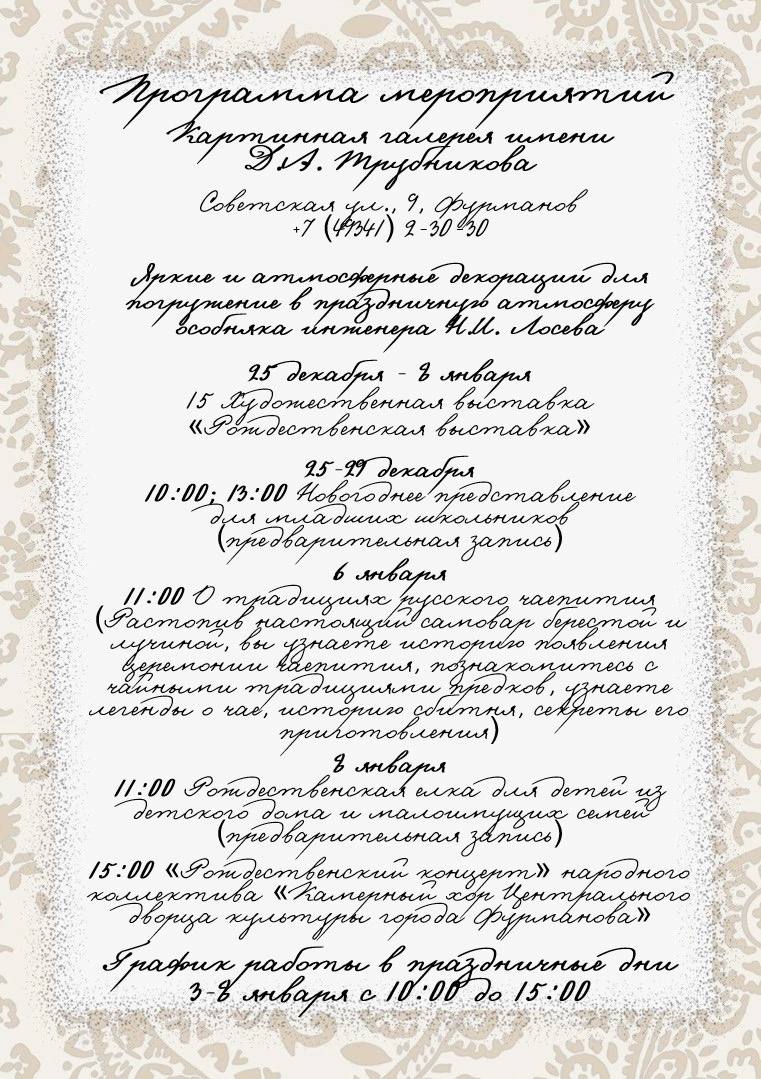 Программа мероприятий
Картинная галерея имени
Д.А. Трубникова
Советская ул., 9, Фурманов
+7 (49341) 2-30-30
Яркие и атмосферные декорации для
погружение в праздничную атмосферу
особняка инженера Н.М. Лосева
25 декабря - 8 января
15 Художественная выставка
«Рождественская выставка»
25-29 декабря
10:00; 13:00 Новогоднее представление
для младших школьников
(предварительная запись)
6 января
11:00 О традициях русского чаепития
(Растопив настоящий самовар берестой и
лучиной, вы узнаете историю появления
церемонии чаепития, познакомитесь с
чайными традициями предков, узнаете
легенды о чае, историю сбитня, секреты его
приготовления)
8 января
11:00 Рождественская елка для детей из
детского дома и малоимущих семей
(предварительная запись)
15:00 «Рождественский концерт» народного
коллектива «Камерный хор Центрального
дворца культуры города Фурманова»
График работы в праздничные дни
3-8 января с 10:00 до 15:00